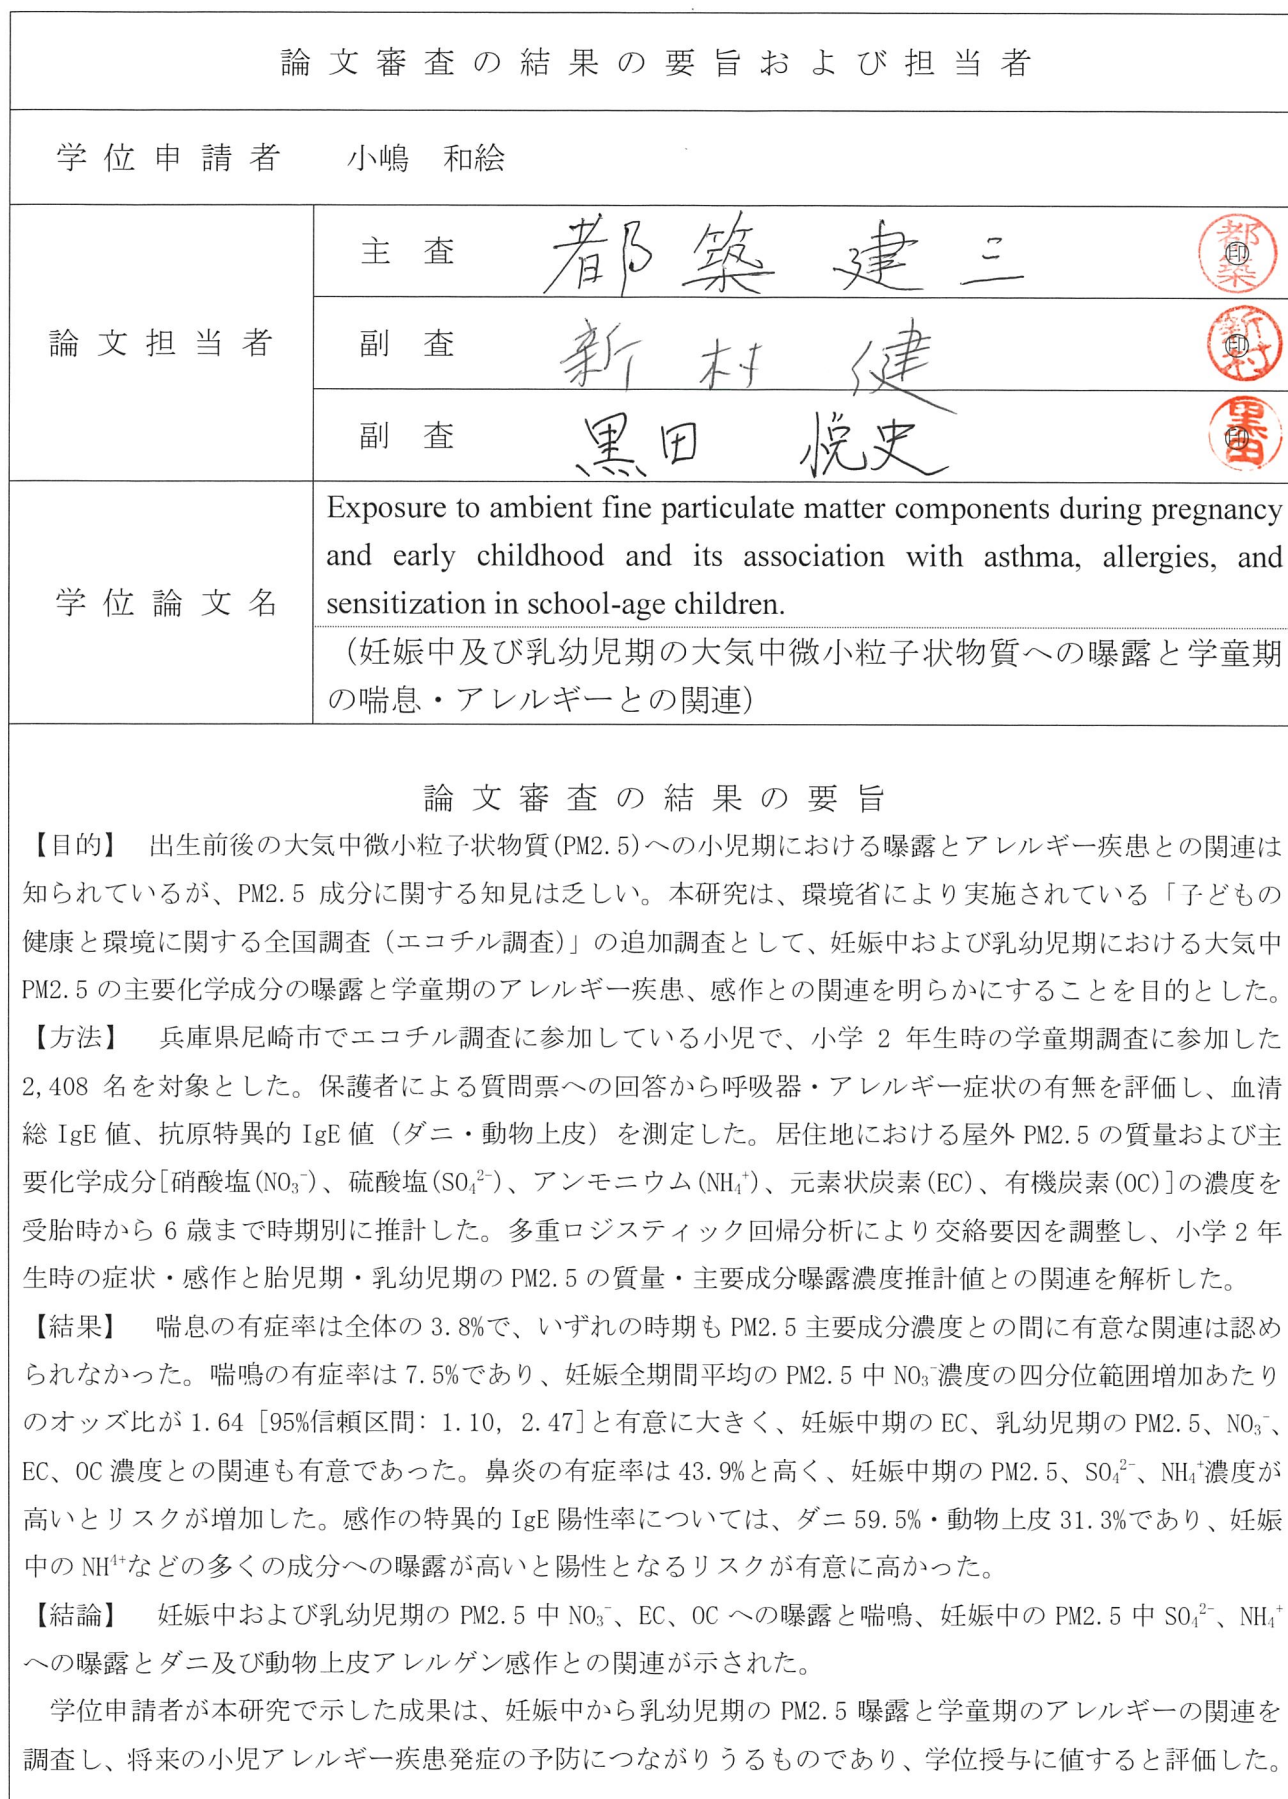 論文審査の結果の要旨および担当者
学位申請者 小嶋 和絵
論文担当者
主査 都築 建三 都築 ㊞
副査 新村 健 新村 ㊞
副査 黒田 悦史 黒田 ㊞
学位論文名
Exposure to ambient fine particulate matter components during pregnancy
and early childhood and its association with asthma, allergies, and
sensitization in school-age children.
（妊娠中及び乳幼児期の大気中微小粒子状物質への曝露と学童期
の喘息・アレルギーとの関連）
論文審査の結果の要旨
【目的】 出生前後の大気中微小粒子状物質(PM2.5)への小児期における曝露とアレルギー疾患との関連は
知られているが、PM2.5 成分に関する知見は乏しい。本研究は、環境省により実施されている「子どもの
健康と環境に関する全国調査（エコチル調査）」の追加調査として、妊娠中および乳幼児期における大気中
PM2.5 の主要化学成分の曝露と学童期のアレルギー疾患、感作との関連を明らかにすることを目的とした。
【方法】 兵庫県尼崎市でエコチル調査に参加している小児で、小学 2 年生時の学童期調査に参加した
2,408 名を対象とした。保護者による質問票への回答から呼吸器・アレルギー症状の有無を評価し、血清
総 IgE 値、抗原特異的 IgE 値（ダニ・動物上皮）を測定した。居住地における屋外 PM2.5 の質量および主
要化学成分[硝酸塩(NO₃⁻)、硫酸塩(SO₄²⁻)、アンモニウム(NH₄⁺)、元素状炭素(EC)、有機炭素(OC)]の濃度を
受胎時から 6 歳まで時期別に推計した。多重ロジスティック回帰分析により交絡要因を調整し、小学 2 年
生時の症状・感作と胎児期・乳幼児期の PM2.5 の質量・主要成分曝露濃度推計値との関連を解析した。
【結果】 喘息の有症率は全体の 3.8%で、いずれの時期も PM2.5 主要成分濃度との間に有意な関連は認め
られなかった。喘鳴の有症率は 7.5%であり、妊娠全期間平均の PM2.5 中 NO₃⁻濃度の四分位範囲増加あたり
のオッズ比が 1.64 [95%信頼区間: 1.10, 2.47]と有意に大きく、妊娠中期の EC、乳幼児期の PM2.5、NO₃⁻、
EC、OC 濃度との関連も有意であった。鼻炎の有症率は 43.9%と高く、妊娠中期の PM2.5、SO₄²⁻、NH₄⁺濃度が
高いとリスクが増加した。感作の特異的 IgE 陽性率については、ダニ 59.5%・動物上皮 31.3%であり、妊娠
中の NH⁴⁺などの多くの成分への曝露が高いと陽性となるリスクが有意に高かった。
【結論】 妊娠中および乳幼児期の PM2.5 中 NO₃⁻、EC、OC への曝露と喘鳴、妊娠中の PM2.5 中 SO₄²⁻、NH₄⁺
への曝露とダニ及び動物上皮アレルゲン感作との関連が示された。
学位申請者が本研究で示した成果は、妊娠中から乳幼児期の PM2.5 曝露と学童期のアレルギーの関連を
調査し、将来の小児アレルギー疾患発症の予防につながりうるものであり、学位授与に値すると評価した。